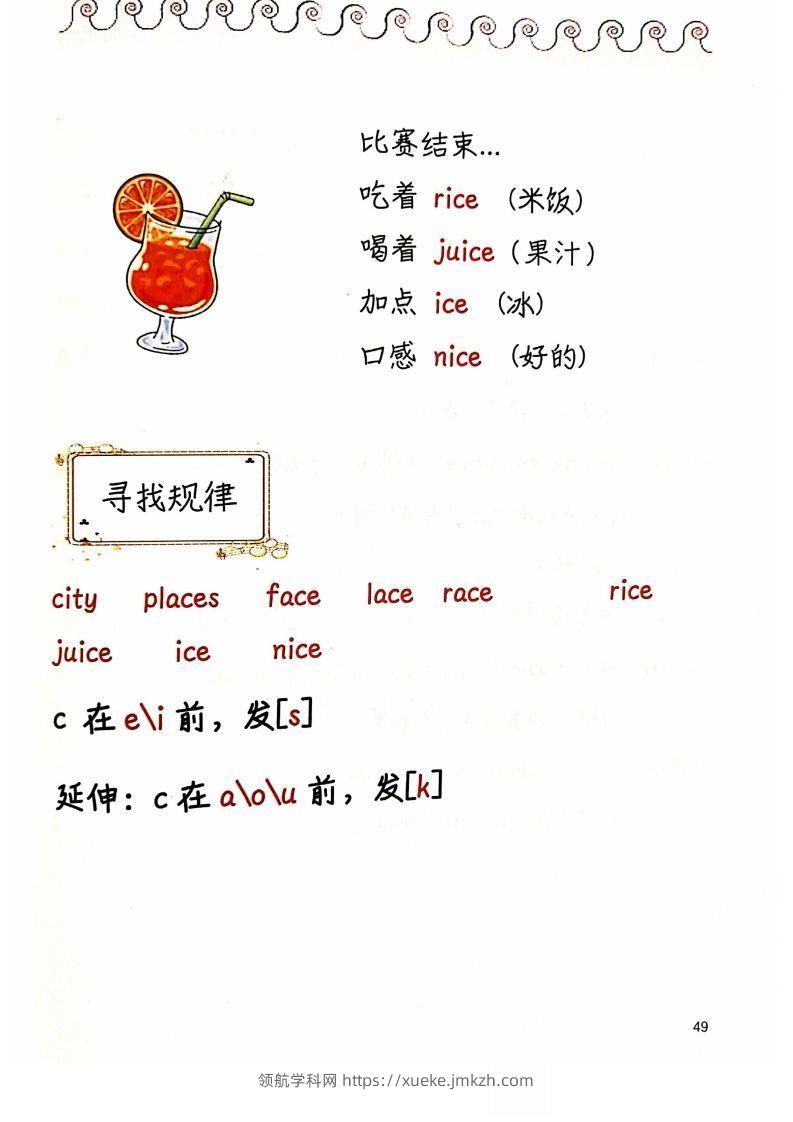 比赛结束...
吃着 rice （米饭）
喝着 juice（果汁）
加点 ice （冰）
口感 nice （好的）
寻找规律
city places face lace race rice
juice ice nice
c 在 e\i 前，发[s]
延伸：c 在 a\o\u 前，发[k]
49
领航学科网 https://xueke.jmkzh.com